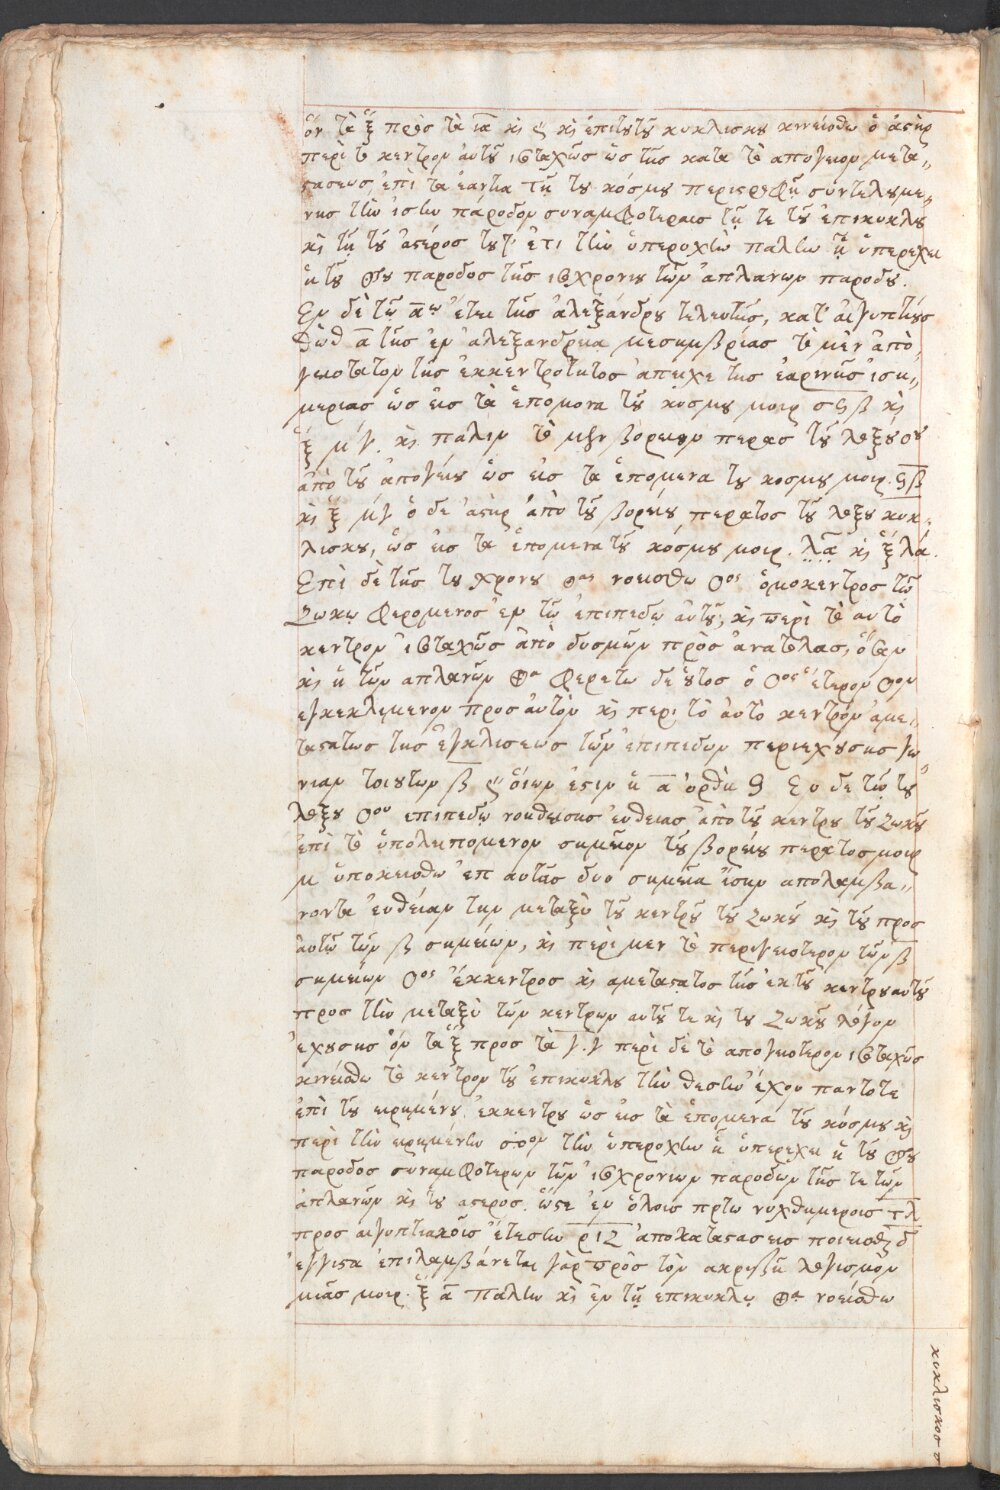 ὃν τὰ ξ̄ πρὸς τὰ ιᾱ κὶ ϛ κὶ ἐπὶ τούτου κυκλίσκου κινείσθω ὁ ἀστὴρ
περὶ τὸ κέντρον αὐτοῦ ἰσοταχῶς ὡς τῆς κατὰ τὸ ἀπόγειον μετα„
στάσεως, ἐπὶ τὰ ἐναντία τῇ τοῦ κόσμου περιστροφῇ συντελουμέ„
νης τὴν ἴσην πάροδον συναμφοτέραις τῇ τε τοῦ ἐπικύκλου
κὶ τῇ τοῦ ἀστέρος ἔτι τὴν ὑπεροχὴν πάλιν ᾗ ὑπερέχει
ἡ τοῦ παροδος τῆς ἰσοχρονίου τῶν ἀπλανῶν παρόδου.
Ἐν δὲ τῷ ᾱῳ ἔτει τῆς ἀλεξάνδρου τελευτῆς, κατ' αἰγυπτίους
θὼθ ᾱ τῆς ἐν ἀλεξανδρείᾳ μεσημβρίας τὸ μὲν ἀπο„
γειότατον τῆς ἐκκεντρότητος ἀπεῖχε τῆς ἐαρινῆς ἰση„
μερίας ὡς εἰς τὰ ἑπόμενα τοῦ κόσμου μοιρ σϟβ κὶ
ξ̄ μγ. κὶ πάλιν τὸ μὲν βόρειον πέρας τοῦ λοξοῦ
ἀπὸ τοῦ ἀπογείου ὡς εἰς τὰ ἑπόμενα τοῦ κόσμου μοιρ. ϟβ
κὶ ξ̄ μγ ὁ δὲ ἀστὴρ ἀπὸ τοῦ βορείου πέρατος τοῦ λοξοῦ κυκ„
λίσκου, ὡς εἰς τὰ ἑπόμενα τοῦ κόσμου μοιρ. λ̄ᾱ κὶ ξ̄ λᾱ.
Ἐπὶ δὲ τῆς τοῦ χρόνου νοείσθω ὁμόκεντρος τῷ
Ζωκῷ φερόμενος ἐν τῷ ἐπιπέδῳ αὐτοῦ, κὶ περὶ τὸ αὐτὸ
κέντρον ἰσοταχῶς ἀπὸ δυσμῶν πρὸς ἀνατολὰς, ὅσον
κὶ ἡ τῶν ἀπλανῶν φερέτω δὲ οὗτος ὁ ἕτερον
ἐγκεκλιμένον πρὸς αὐτὸν κὶ περὶ τὸ αὐτὸ κέντρον ἀμε„
ταστάτως τῆς ἐγκλίσεως τῶν ἐπιπέδων περιεχούσης γω„
νίαν τοιούτων β ϛ οἵων ἐστὶν ἡ ᾱ ὀρθὴ ϟ Ἐν δὲ τῷ τοῦ
λοξοῦ ἐπιπέδῳ νοηθείσης εὐθείας ἀπὸ τοῦ κέντρου τοῦ Ζωκοῦ
ἐπὶ τὸ ὑπολειπόμενον σημεῖον τοῦ βορείου πέρατος μοιρ
μ ὑποκείσθω ἐπ αὐτῆς δύο σημεῖα ἴσην ἀπολαμβά„
νοντα εὐθείαν τὴν μεταξὺ τοῦ κέντρου τοῦ Ζωκοῦ κὶ τοῦ πρὸς
αὐτῷ τῶν β σημείων, κὶ περὶ μὲν τὸ περιγειότερον τῶν β
σημείων ἔκκεντρος κὶ ἀμετάστατος τῆς ἐκ τοῦ κέντρου αὐτοῦ
πρὸς τὴν μεταξὺ τῶν κέντρων αὐτοῦ τε κὶ τοῦ Ζωκοῦ λόγον
ἐχούσης ὃν τὰ ξ̄ πρὸς τὰ γ.γ περὶ δὲ τὸ ἀπογειότερον ἰσοταχῶς
κινείσθω τὸ κέντρον τοῦ ἐπικύκλου τὴν θέσιν ἔχον πάντοτε
ἐπὶ τοῦ εἰρημένου ἐκκέντρου ὡς εἰς τὰ ἑπόμενα τοῦ κόσμου κὶ
περὶ τὴν εἰρημένην τὴν ὑπεροχὴν ᾗ ὑπερέχει ἡ τοῦ
παροδος συναμφοτέρων τῶν ἰσοχρονίων παρόδων τῆς τε τῶν
ἀπλανῶν κὶ τοῦ ἀστέρος. ὥστε ἐν ὅλοις πρτω νυχθημέροις τλ
πρὸς αἰγυπτιακοῖς ἔτεσιν ριζ ἀποκαταστάσεις ποιεῖσθαι
ἔγγιστα ἐπιλαμβάνεται γὰρ πρὸς τὸν ἀκριβῆ λογισμὸν
μιᾶς μοιρ. ξ̄ ᾱ πάλιν κὶ ἐν τῷ ἐπικύκλῳ νοείσθω
κυκλίσκος